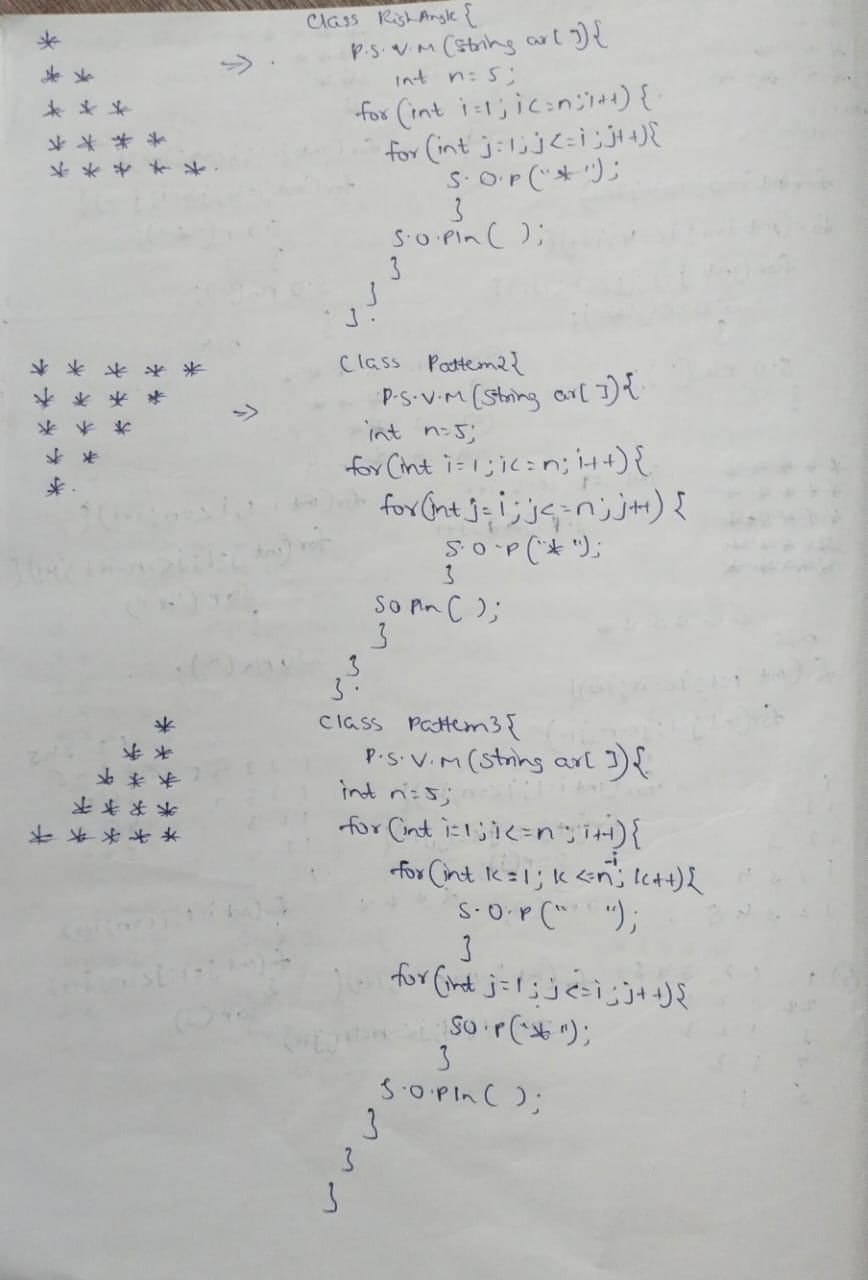 *
* *
* * *
* * * *
* * * * *.
→.
Class RighAngle{
P.S.V.M (String ar[ ]){
int n=5;
for(int i=1; i<=n; i++) {
for(int j=1; j<=i; j++){
S.O.P("*");
}
S.O.Pln( );
}
}
}.
* * * * *
* * * *
* * *
* *
*.
→
Class Pattern2{
P.S.V.M (String ar[ ]){
int n=5;
for(int i=1; i<=n; i++){
for(int j=i; j<=n; j++) {
S.O.P("*");
}
SO Pln( );
}
}
}.
*
* *
* * *
* * * *
* * * * *
Class Pattern3{
P.S.V.M (String ar[ ]){
int n=5;
for(int i=1; i<=n; i++){
for(int k=1; k<=n-i; k++){
S.O.P(" ");
}
for(int j=1; j<=i; j++){
SO.P("*");
}
S.O.Pln( );
}
}
}